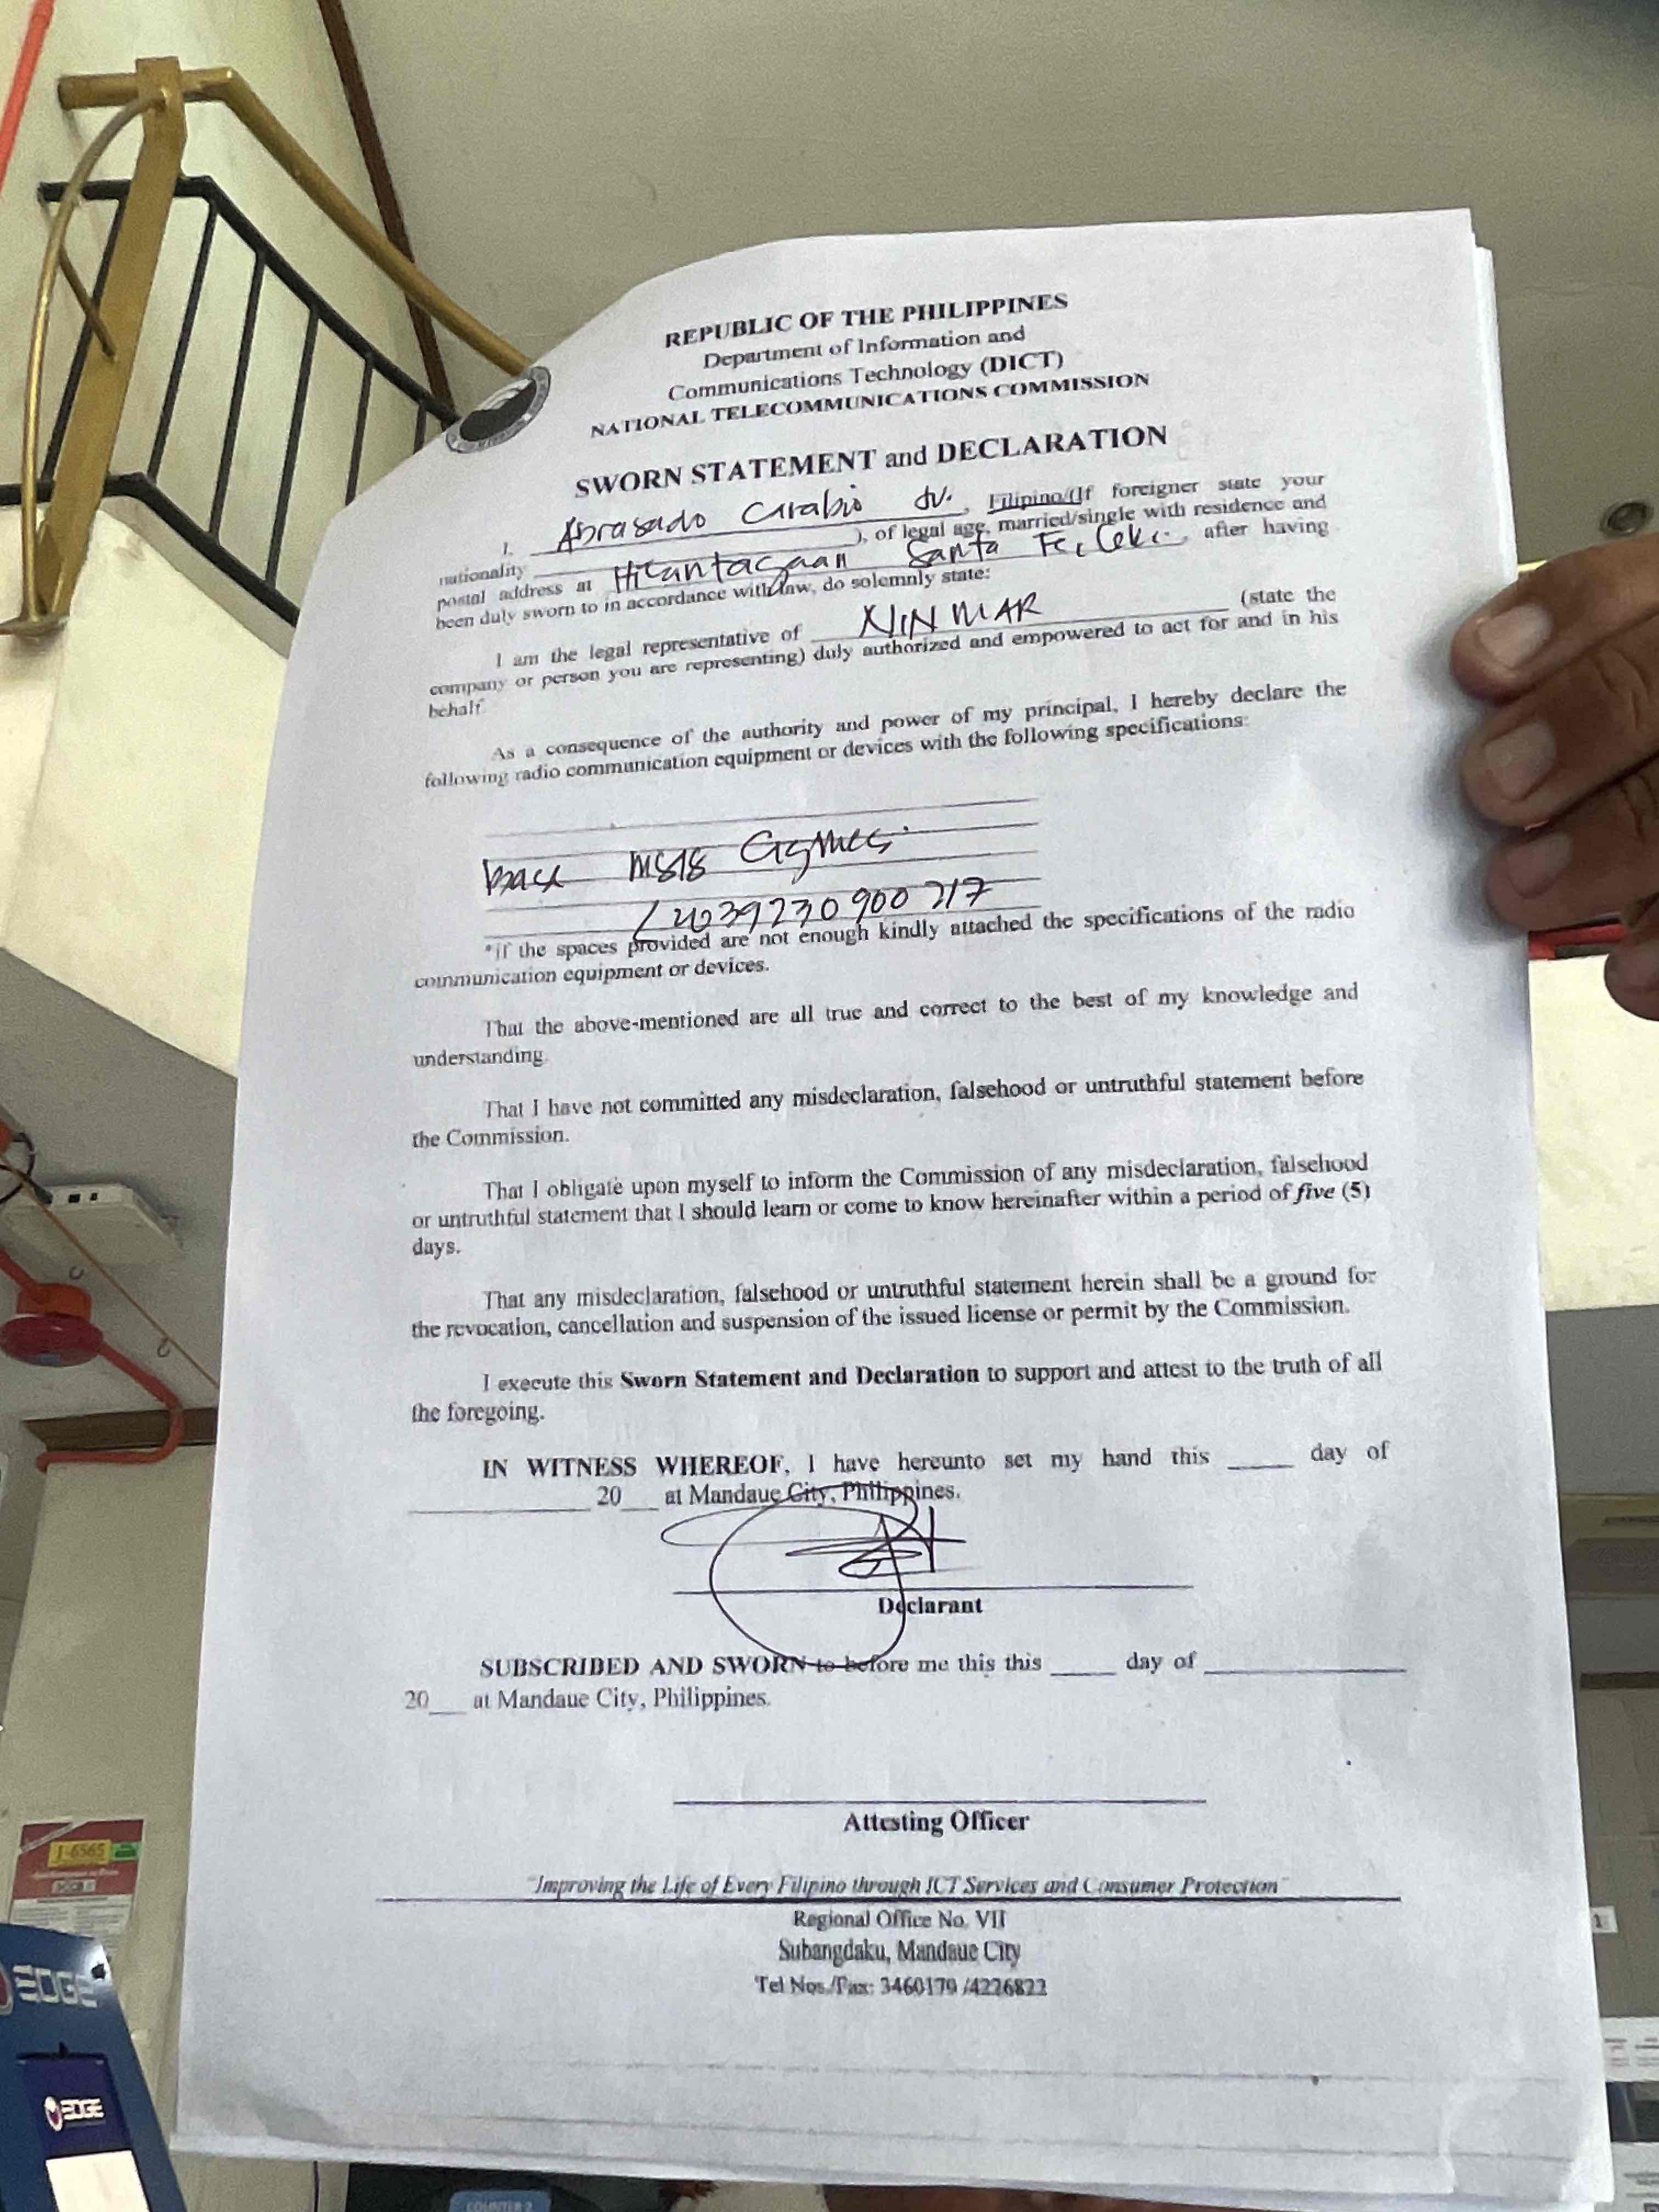 REPUBLIC OF THE PHILIPPINES
Department of Information and
Communications Technology (DICT)
NATIONAL TELECOMMUNICATIONS COMMISSION
SWORN STATEMENT and DECLARATION
I, Abrasado Carabio Jr., Filipino/(If foreigner state your
nationality ), of legal age, married/single with residence and
postal address at Hilantagaan Santa Fe, Cebu, after having
been duly sworn to in accordance with law, do solemnly state:
I am the legal representative of NIN MAR (state the
company or person you are representing) duly authorized and empowered to act for and in his
behalf.
As a consequence of the authority and power of my principal, I hereby declare the
following radio communication equipment or devices with the following specifications:
base
2039230900717
*if the spaces provided are not enough kindly attached the specifications of the radio
communication equipment or devices.
That the above-mentioned are all true and correct to the best of my knowledge and
understanding.
That I have not committed any misdeclaration, falsehood or untruthful statement before
the Commission.
That I obligate upon myself to inform the Commission of any misdeclaration, falsehood
or untruthful statement that I should learn or come to know hereinafter within a period of five (5)
days.
That any misdeclaration, falsehood or untruthful statement herein shall be a ground for
the revocation, cancellation and suspension of the issued license or permit by the Commission.
I execute this Sworn Statement and Declaration to support and attest to the truth of all
the foregoing.
IN WITNESS WHEREOF, I have hereunto set my hand this _____ day of
______________ 20___ at Mandaue City, Philippines.
Declarant
SUBSCRIBED AND SWORN to before me this this _____ day of ______________
20___ at Mandaue City, Philippines.
Attesting Officer
"Improving the Life of Every Filipino through ICT Services and Consumer Protection"
Regional Office No. VII
Subangdaku, Mandaue City
Tel Nos./Fax: 3460179 /4226822
J-6565
EDGE
EDGE
COUNTER 2
1